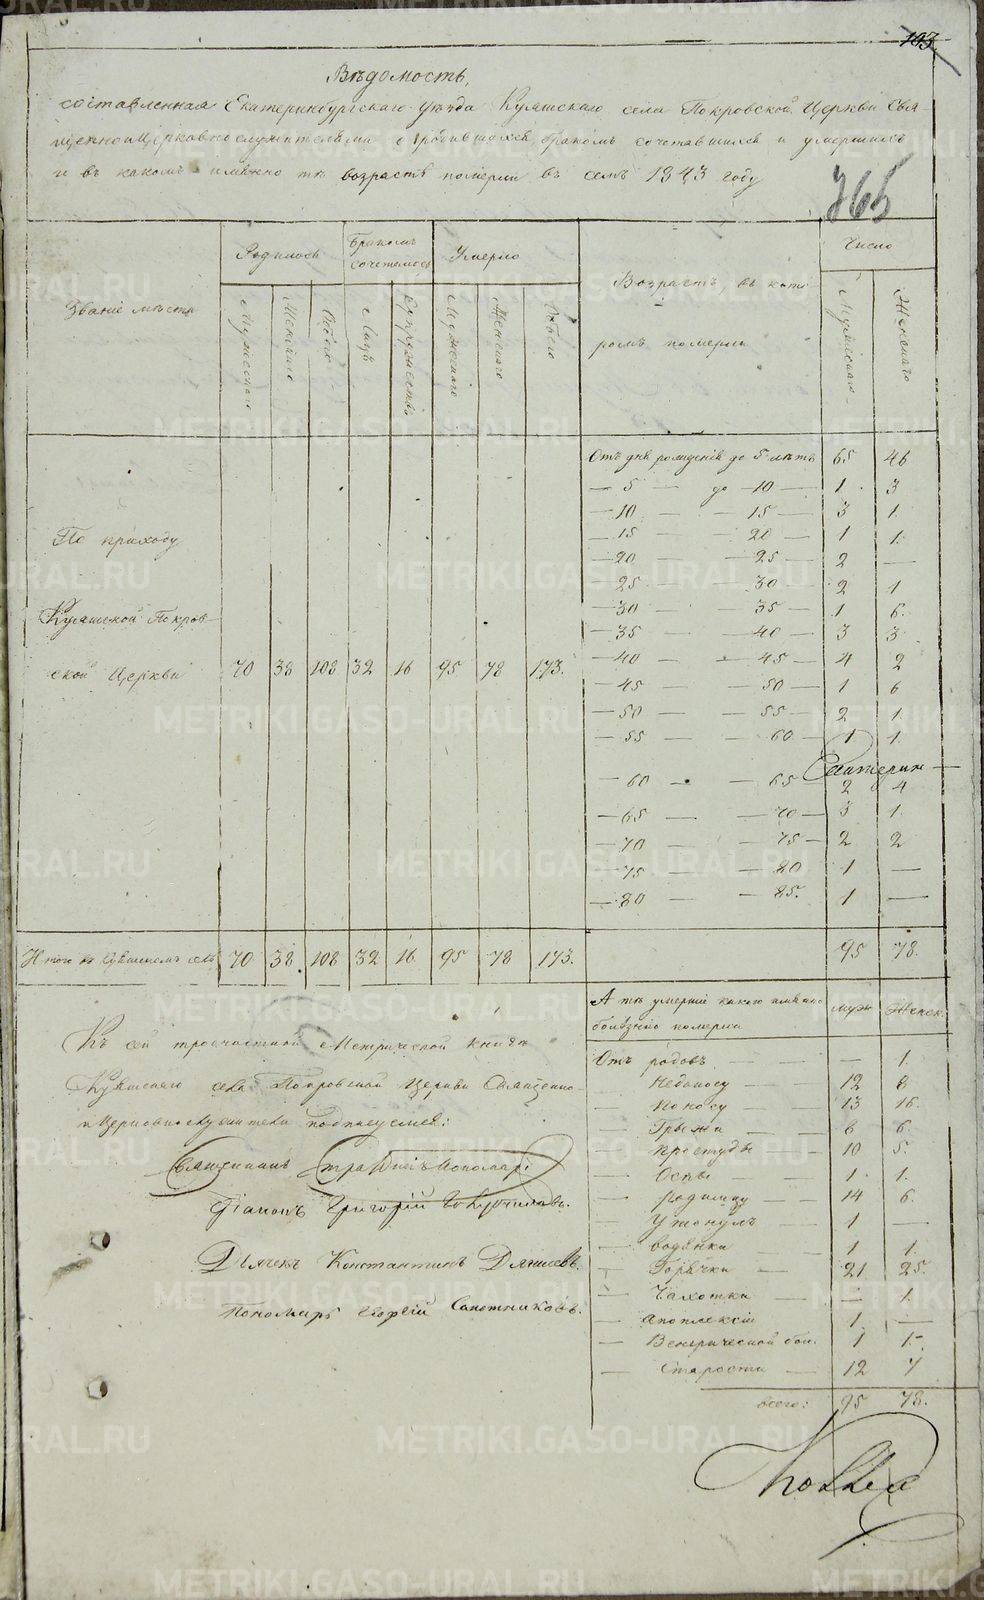 193
Вѣдомость,
составленная Екатеринбургскаго уѣзда Куяшскаго села Покровской Церкви Свя-
щенноицерковнослужителями о родившихся, бракомъ сочетавшихся и умершихъ
и въ какомъ именно тѣ возрастѣ померли въ семъ 1843 году
765
Званіе мѣстъ
Родилось
Бракомъ сочеталось
Умерло
Возрастъ, въ кото-
ромъ померли
Число
Мужескаго
Женскаго
Обоего
Лицъ
Супружествъ
Мужескаго
Женскаго
Обоего
Мужескаго
Женскаго
Отъ дня рожденія до 5 лѣтъ 65 46
— 5 — до — 10 — 1 3
— 10 — 15 — 3 1
— 15 — 20 — 1 1
— 20 — 25 — 2 —
— 25 — 30 — 2 1
— 30 — 35 — 1 6
— 35 — 40 — 3 3
— 40 — 45 — 4 2
— 45 — 50 — 1 6
— 50 — 55 — 2 1
— 55 — 60 — 1 1
— 60 — 65 2 4
— 65 — 70 — 3 1
— 70 — 75 — 2 2
— 75 — 80 1 —
— 80 — 85. 1 —
По приходу
Куяшской Покров-
ской Церкви 70 38 108 32 16 95 78 173.
Итого въ Куяшскомъ селѣ 70 38 108 32 16 95 78 173. 95 78.
А тѣ умершіе какою именно
болѣзнію померли муж Женск.
Отъ родовъ — — 1.
— Недоносу — 12 8
— Поносу — 13 16.
— Грыжи — 6 6.
— простуды — 10 5.
— Оспы — 1 1.
— родимцу — 14 6.
— Утонулъ — 1 —
— водянки 1 1.
— Горячки — 21 25.
— Чахотки — — 1.
— апоплексіи 1 —
— Венерической бол. 1 1.
— Старости — 12 7
всего: 95 78.
Къ сей троечастной Метрической книгѣ
Куяшскаго села Покровской Церкви Священно-
и церковнослужители подписуемся:
Священникъ
Діаконъ Григорій
Дьячекъ Константинъ
Пономарь Георгій Сапожниковъ.
METRIKI.GASO-URAL.RU